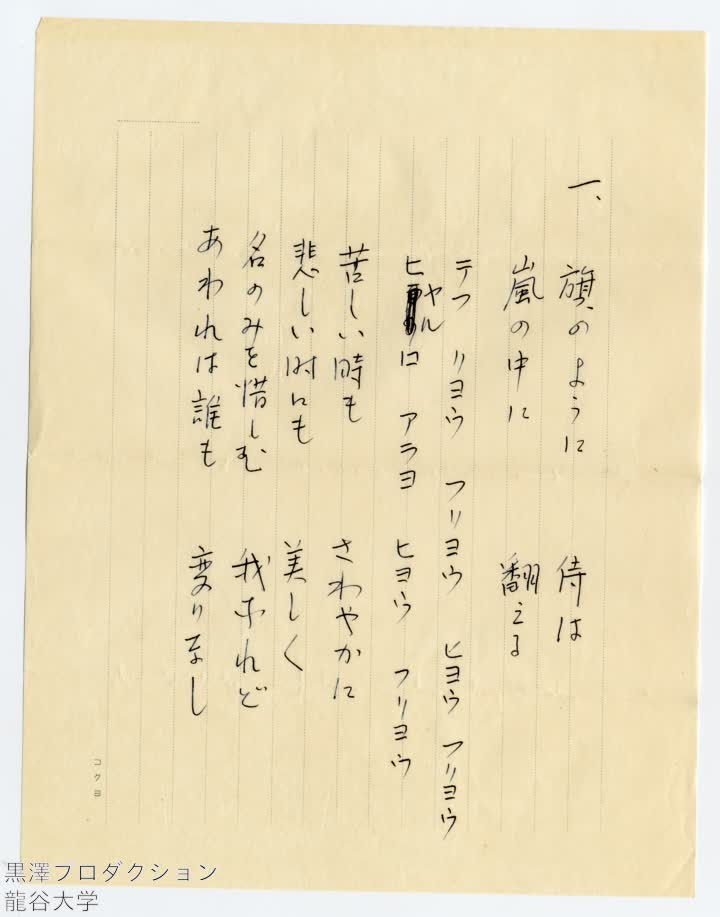 一、
旗のように 侍は
嵐の中に 翻える
テフ リヨウ フリヨウ ヒヨウ フリヨウ
ヒヤルロ アラヨ ヒヨウ フリヨウ
苦しい時も さわやかに
悲しい時にも 美しく
名のみを惜しむ 我なれど
あわれは誰も 変りなし
コクヨ
黒澤プロダクション
龍谷大学